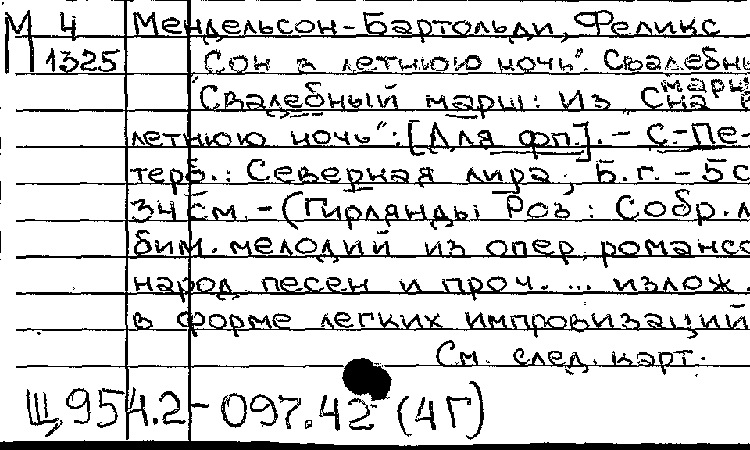 М 4 Мендельсон-Бартольди, Феликс
1325 "Сон в летнюю ночь". Свадебны
марш
"Свадебный марш: Из "Сна в
летнюю ночь": [Для фп.]. - С.-Пе-
терб.: Северная лира, Б.г. - 5 с
34 см. - (Гирлянды Роз: Собр. л
бим. мелодий из опер, романсо
народ песен и проч. ... излож.
в форме легких импровизаций
См. след. карт.
Щ 954.2-097.42 (4Г)